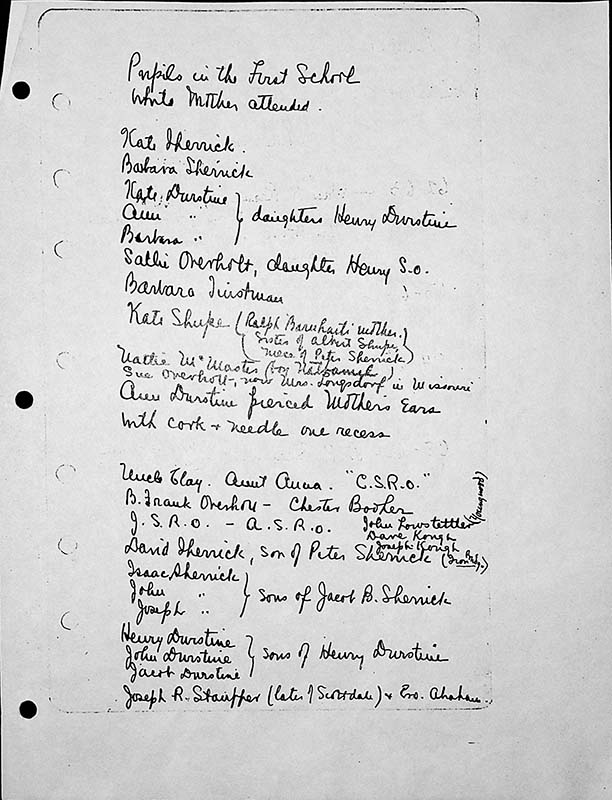 Pupils in the First School
White Mother attended.
Kate Sherrick.
Barbara Sherrick
Kate Durstine
Ann " " daughters Henry Durstine
Barbara "
Sallie Overholt, daughter Henry S.O.
Barbara Tinstman
Kate Shupe (Ralph Barnhart's mother.)
Sister of Albert Shupe
niece of Peter Sherrick)
Hattie McMasters (boy
Sue Overholt, now Mrs. Longsdorf in Missouri
Ann Durstine pierced Mother's Ears
With cork + needle one recess
Uncle Clay. Aunt Anna. "C.S.R.O."
B. Frank Overholt - Chester Booher
J.S.R.O. - A.S.R.O. John Lowstettler (Youngwood)
Dave Kough
Joseph Kough
David Sherrick, son of Peter Sherrick
Isaac Sherrick
John " sons of Jacob B. Sherrick
Joseph "
Henry Durstine
John Durstine sons of Henry Durstine
Jacob Durstine
Joseph R. Stauffer (later of Scottdale) + Bro. Abraham.